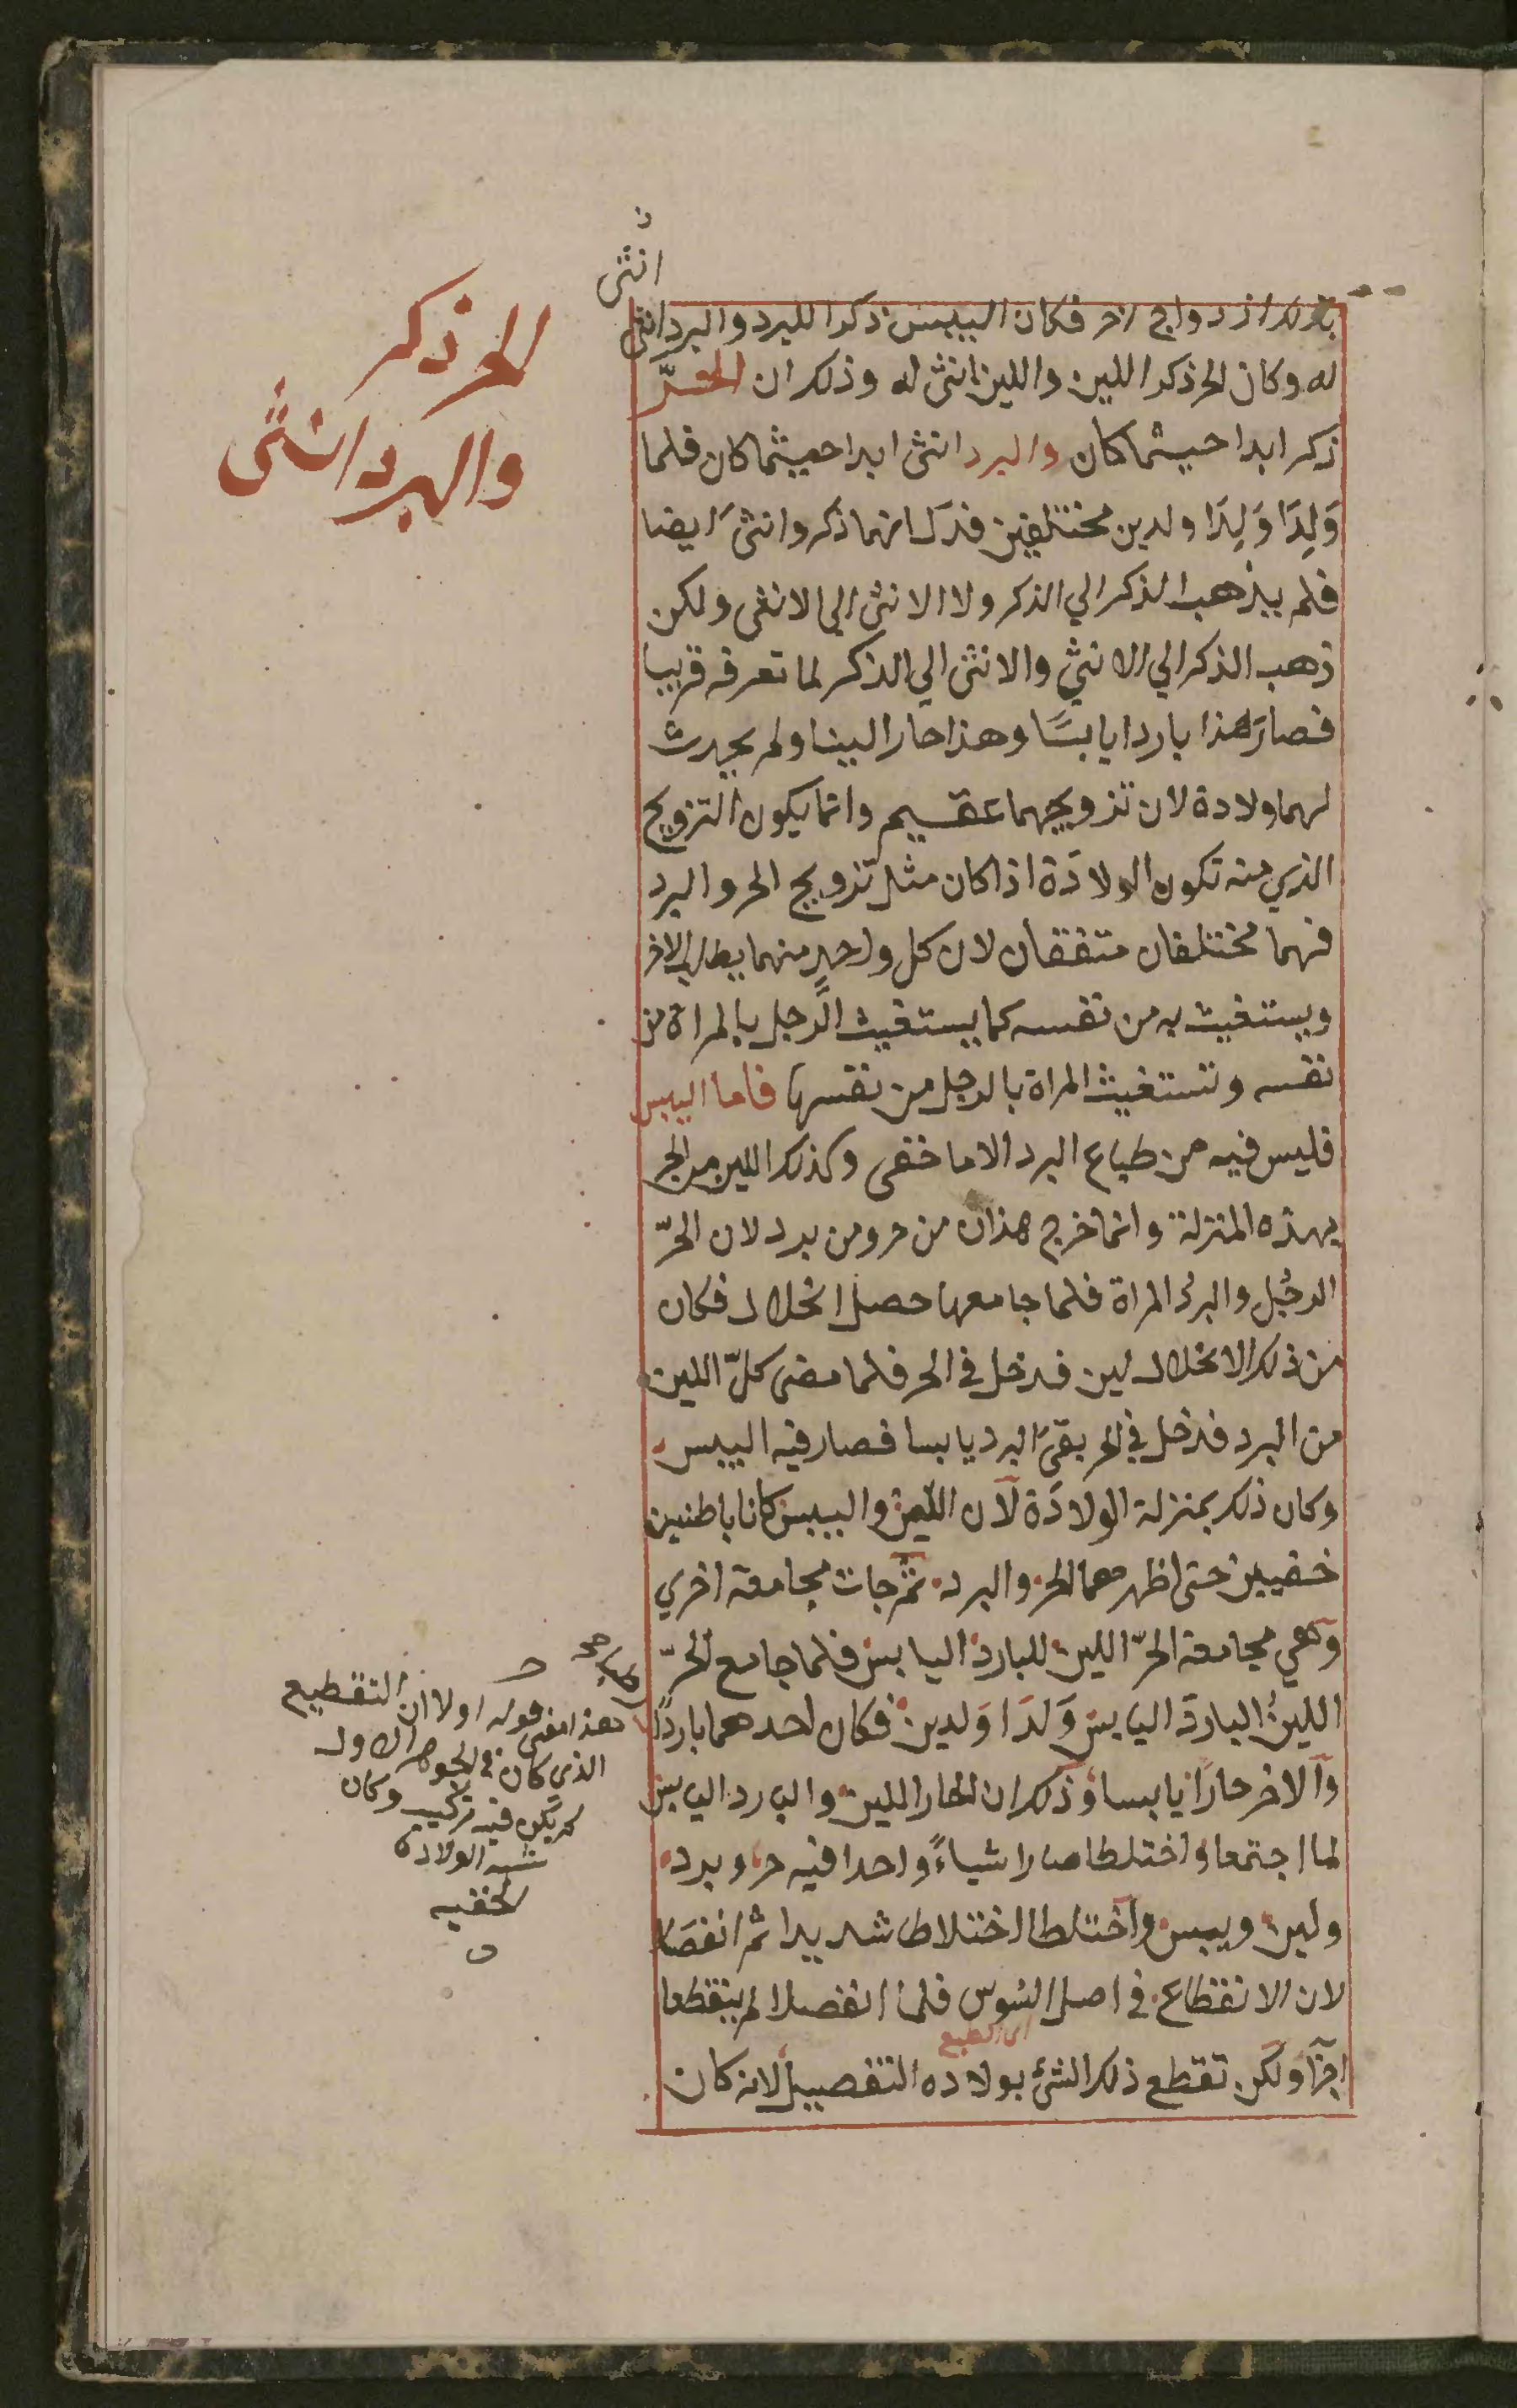 ن
انثى
الحر ذكر
والبرد انثى
بذلك ازدواج اخر فكان اليبس ذكرا للبرد والبرد انثى
له وكان الحر ذكرا اللين واللين انثى له وذلك ان الحرّ
ذكر ابدا حيثما كان والبرد انثى ابدا حيثما كان فلما
وَلِدَا وَلِدَا ولدين مختلفين فدل انهما ذكر وانثى ايضا
فلم يذهب الذكر الي الذكر ولا الانثى الي الانثى ولكن
ذهب الذكر الي الانثي والانثى الي الذكر لما تعرفه قريبا
فصار هذا باردا يابسًا وهذا حارا لينا ولم يحدث
لهما ولادة لان تزويجهما عقيم وانما يكون التزويج
الذي منه تكون الولادَة اذا كان مثل تزويج الحر والبرد
فهما مختلفان متفقان لان كل واحدٍ منهما يطلب الاخر
ويستغيث به من نفسه كما يستغيث الرجل بالمراة من
نفسه وتستغيث المراة بالرجل من نفسها فاما اليبس
فليس فيه من طباع البرد الا ما خفى وكذلك اللين من الحر
بهذه المنزلة وانما خرج هذان من حر ومن برد لان الحرّ
الرجُل والبردُ المراة فلما جامعها حصل انحلال فكان
من ذلك الانحلال لين فدخل في الحر فلما مضى كلّ اللين
من البرد فدخل في الحر بقىَ البرد يابسا فصار فيه اليبس
وكان ذلك بمنزلة الولادَة لان اللين واليبس كانا باطنين
خفيين حتى اظهرهما الحر والبرد ثمّ جات مجامعة اخري
وهي مجامعة الحرّ اللين للبارد اليابس فلما جامع الحرّ
اللينُ البارد اليابس وَلَدَا وَلدين فكان احدهما باردًا
والاخر حارًا يابسا وذلك ان الحار اللين والبارد اليابس
لما اجتمعا واختلطا صارا شياءً واحدا فيه حر وبرد
ولين ويبس واختلطا اختلاطا شديدا ثم انفصَلا
لان الانقطاع في اصل السُوس فلما انفصلا لم ينقطعا
اى الطبع
ولكن تقطع ذلك الشئ بولاده التفصيل لانه كان
هذا معنى قوله اولا ان التقطيع
الذي كان في الجوهر الاول
لم يكن فيه تركيب وكان
شبه الولادة
الخفيه